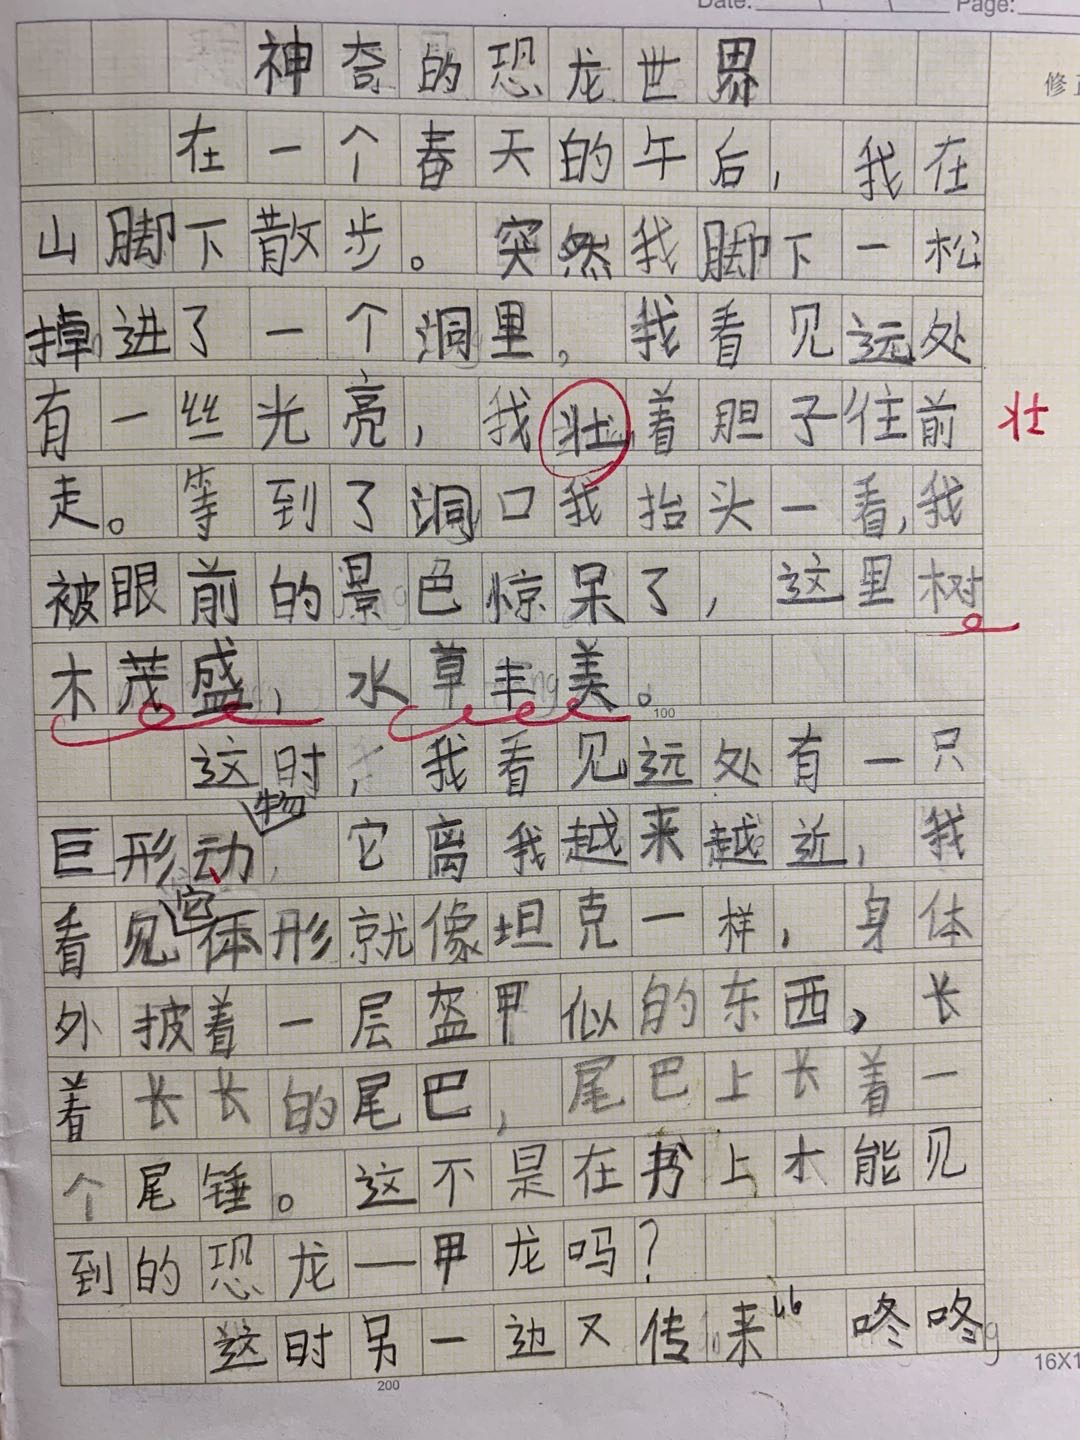 Date: Page:
神奇的恐龙世界
修正
在一个春天的午后，我在
山脚下散步。突然我脚下一松
掉进了一个洞里，我看见远处
有一丝光亮，我壮着胆子住前
壮
走。等到了洞口我抬头一看，我
被眼前的景色惊呆了，这里树
木茂盛，水草丰美。
100
这时，我看见远处有一只
巨形动物，它离我越来越近，我
看见它体形就像坦克一样，身体
外披着一层盔甲似的东西，长
着长长的尾巴，尾巴上长着一
个尾锤。这不是在书上才能见
到的恐龙—甲龙吗？
这时另一边又传来“咚咚
200
16X1